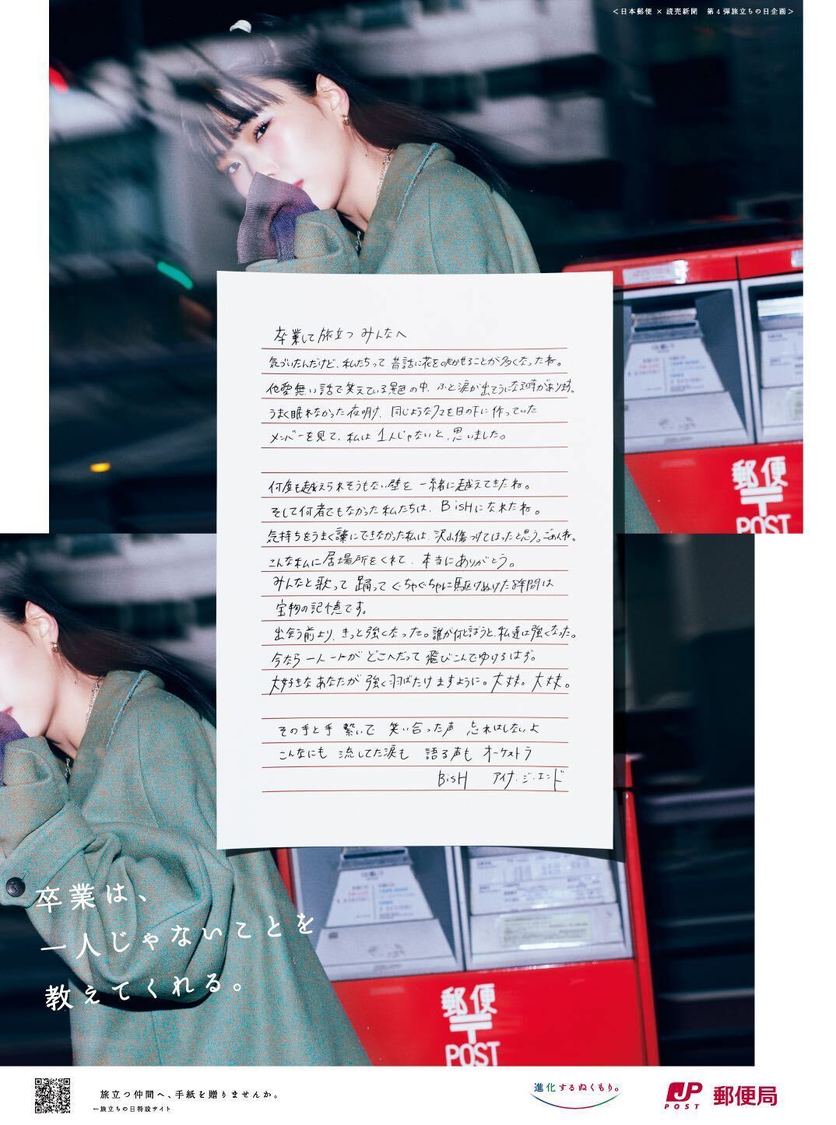 <日本郵便 × 読売新聞　第4弾旅立ちの日企画>
卒業して旅立つ みんなへ
気づいたんだけど、私たちって 昔話に花を咲かせることが多くなったね。
他愛無い話で笑えている景色の中、ふと涙が出てうになる時があります。
うまく眠れなかった夜明け、同じようなクマを目の下に作っていた
メンバーを見て、私は1人じゃないと、思いました。
何度も越えられそうもない壁を 一緒に越えてきたね。
そして何者でもなかった私たちは、BiSHになれたね。
気持ちをうまく言葉にできなかった私は、沢山傷つけてしまったと思う。ごめんね。
こんな私に居場所をくれて、本当にありがとう。
みんなと歌って 踊って ぐちゃぐちゃに駆けぬけた8年間は
宝物の記憶です。
出会う前より、きっと強くなった。誰が何と言おうと、私達は強くなった。
今なら 一人一人が どこへだって 飛びこんでゆけるはず。
大好きなあなたが 強く羽ばたけますように。大丈夫。大丈夫。
その手と手 繋いで 笑い合った声 忘れはしないよ
こんなにも 流してた涙も 語る声も オーケストラ
BiSH　アイナ・ジ・エンド
郵便
〒
POST
卒業は、
一人じゃないことを
教えてくれる。
郵便
〒
POST
旅立つ仲間へ、手紙を贈りませんか。
←旅立ちの日特設サイト
進化するぬくもり。
JP POST 郵便局